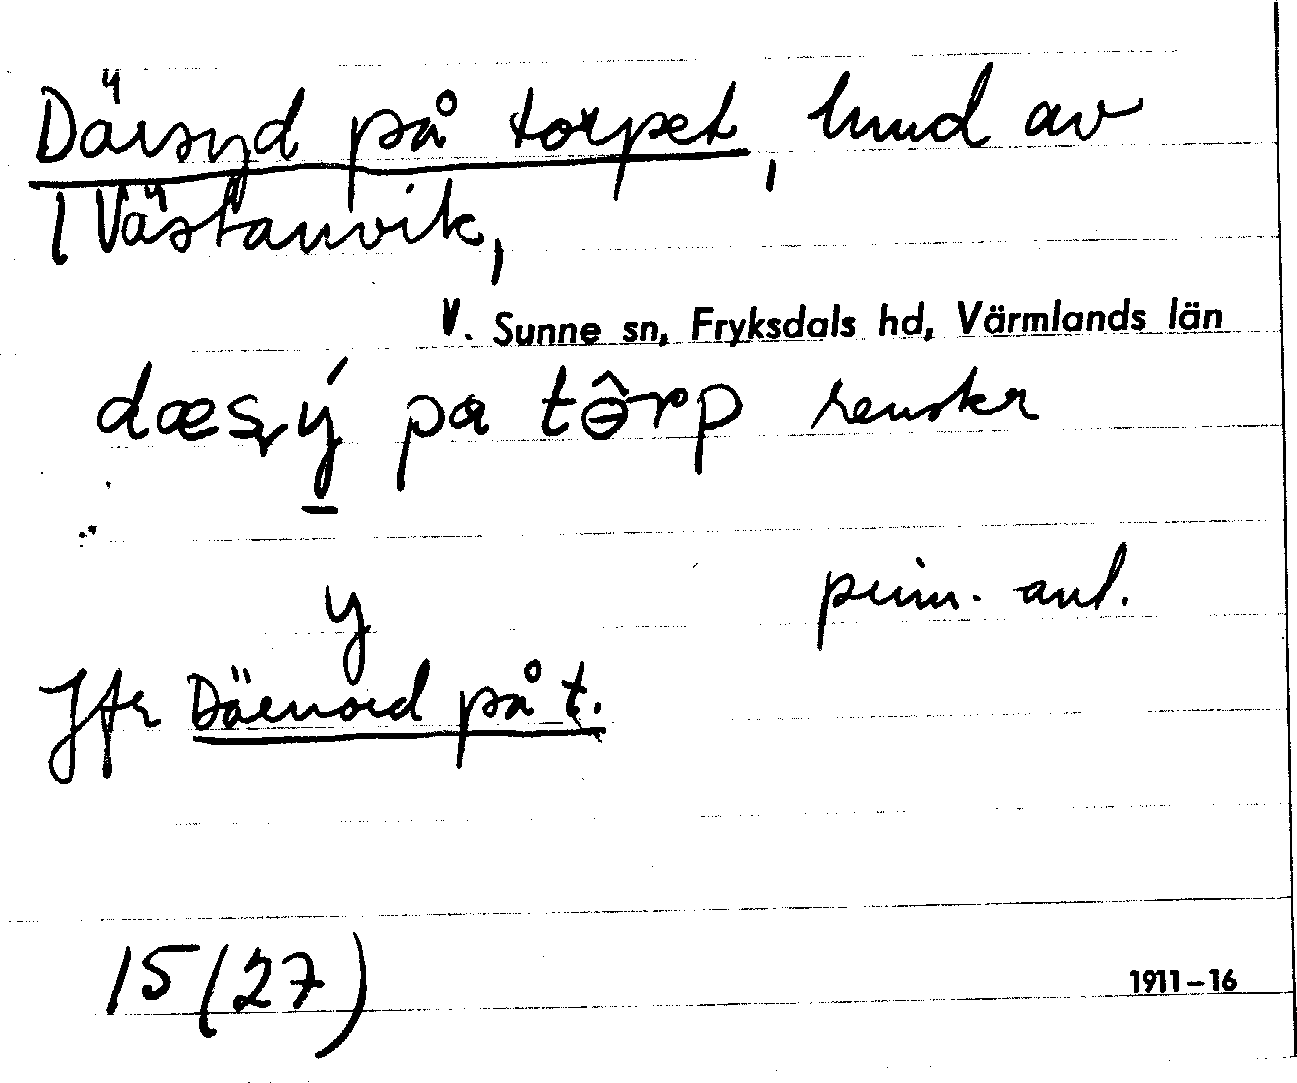 Därsyd på torpet, hmd av
1 Västanvik,
V. Sunne sn, Fryksdals hd, Värmlands län
dæsý pa tôrp
y prim. ant.
Jfr Därnord på t.
15(27)
1911–16